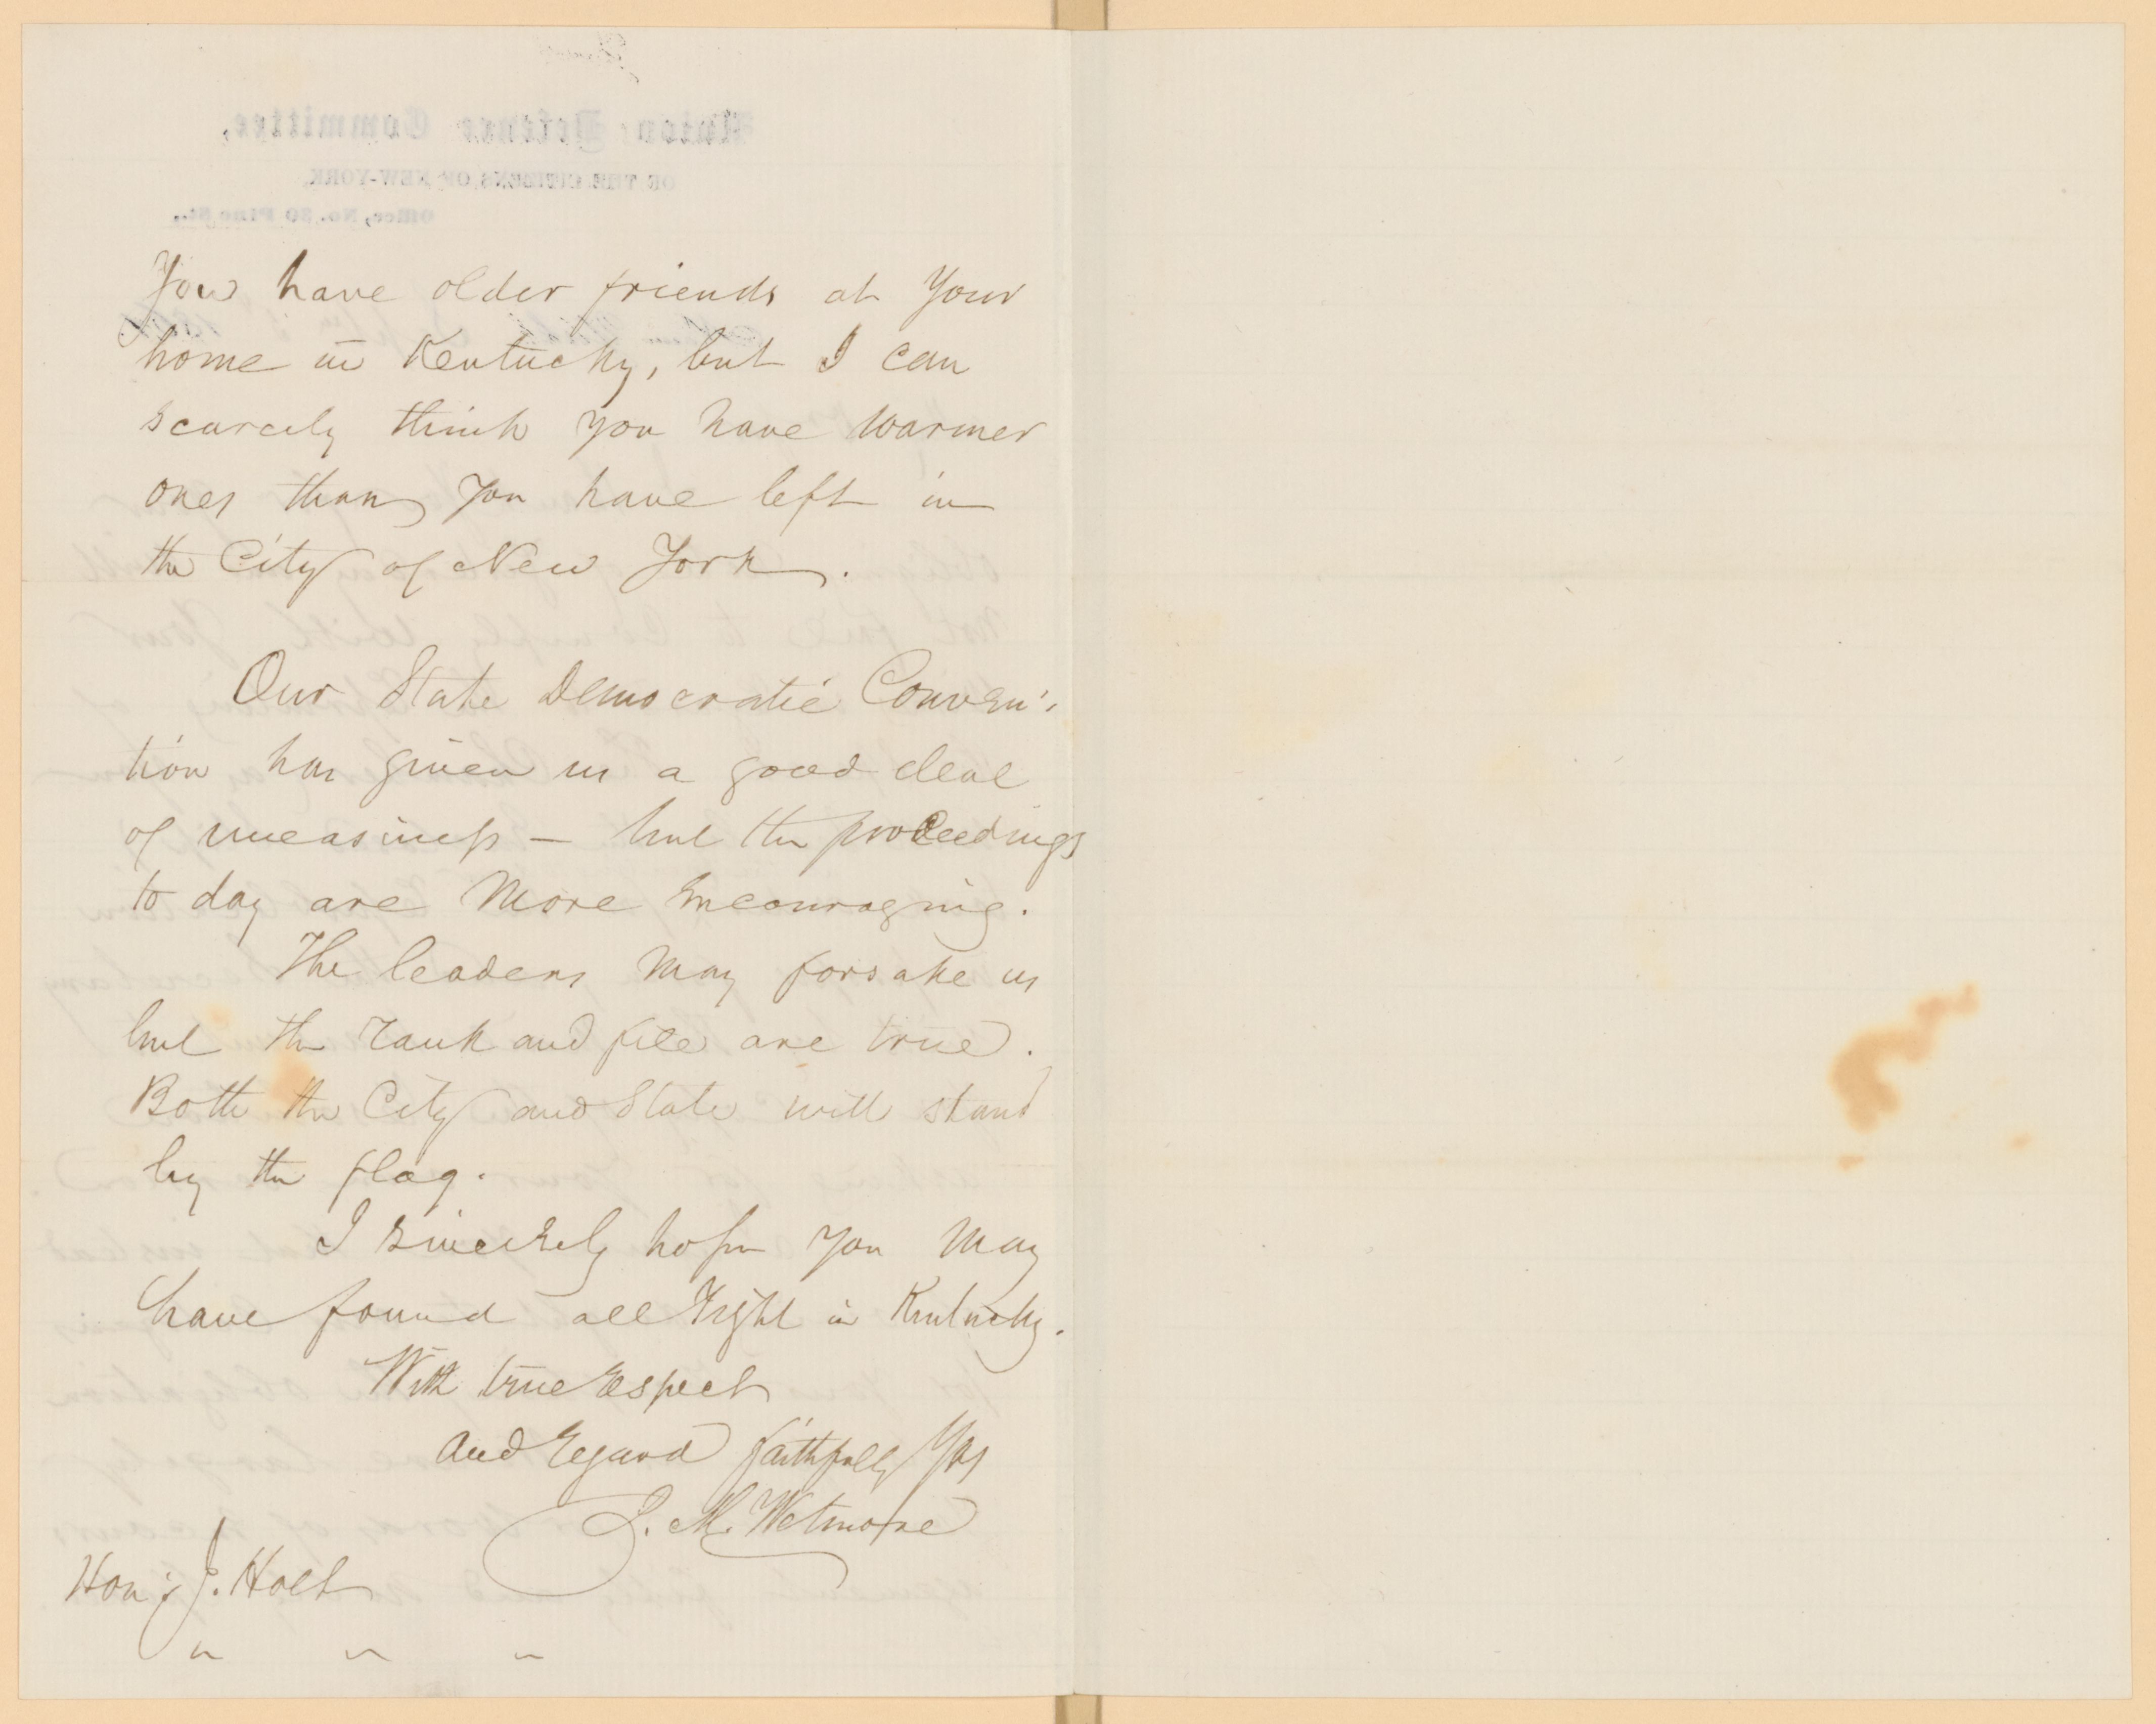 You have older friends at your
home in Kentucky, but I can
scarcely think you have warmer
ones than you have left in
the City of New York.
Our State Democratic Conven-
tion has given us a good deal
of uneasiness — but the proceedings
to day are more encouraging.
The leaders may forsake us
but the rank and file are true.
Both the City and State will stand
by the flag.
I sincerely hope you may
have found all right in Kentucky.
With true respect
and regard faithfully Yrs
P. M. Wetmore
Hon: J. Holt
" " "